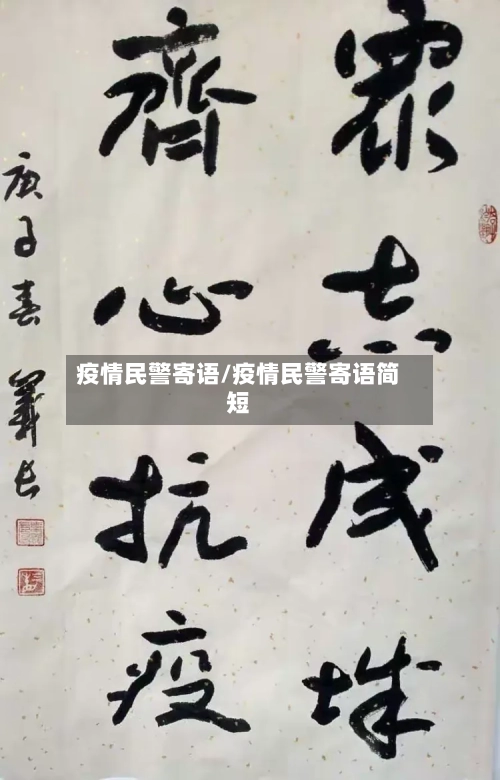 眾志成城
齊心抗疫
庚子春
疫情民警寄语/疫情民警寄语简
短